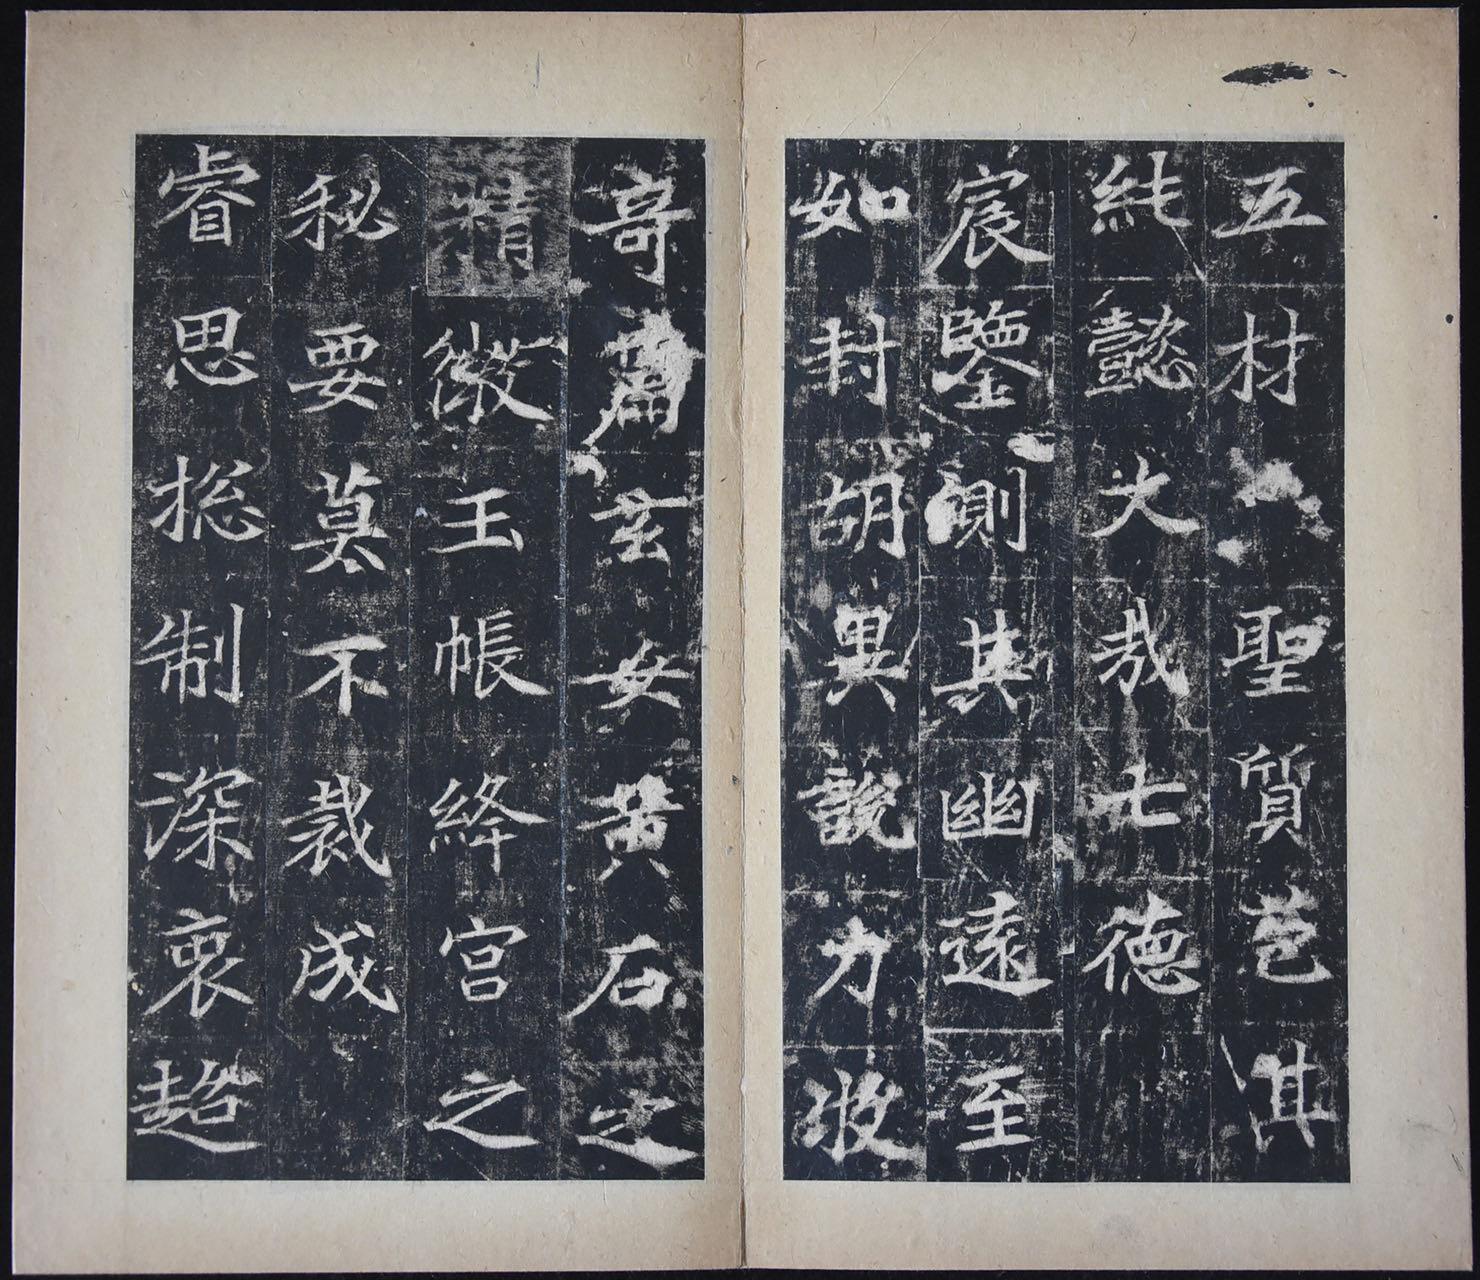 五材聖質苞其
純懿大哉七德
宸鑒測其幽遠至
如封胡異說力牧
奇謩玄女黃石之
精微玉帳絳宮之
秘要莫不裁成
睿思揔制深衷超